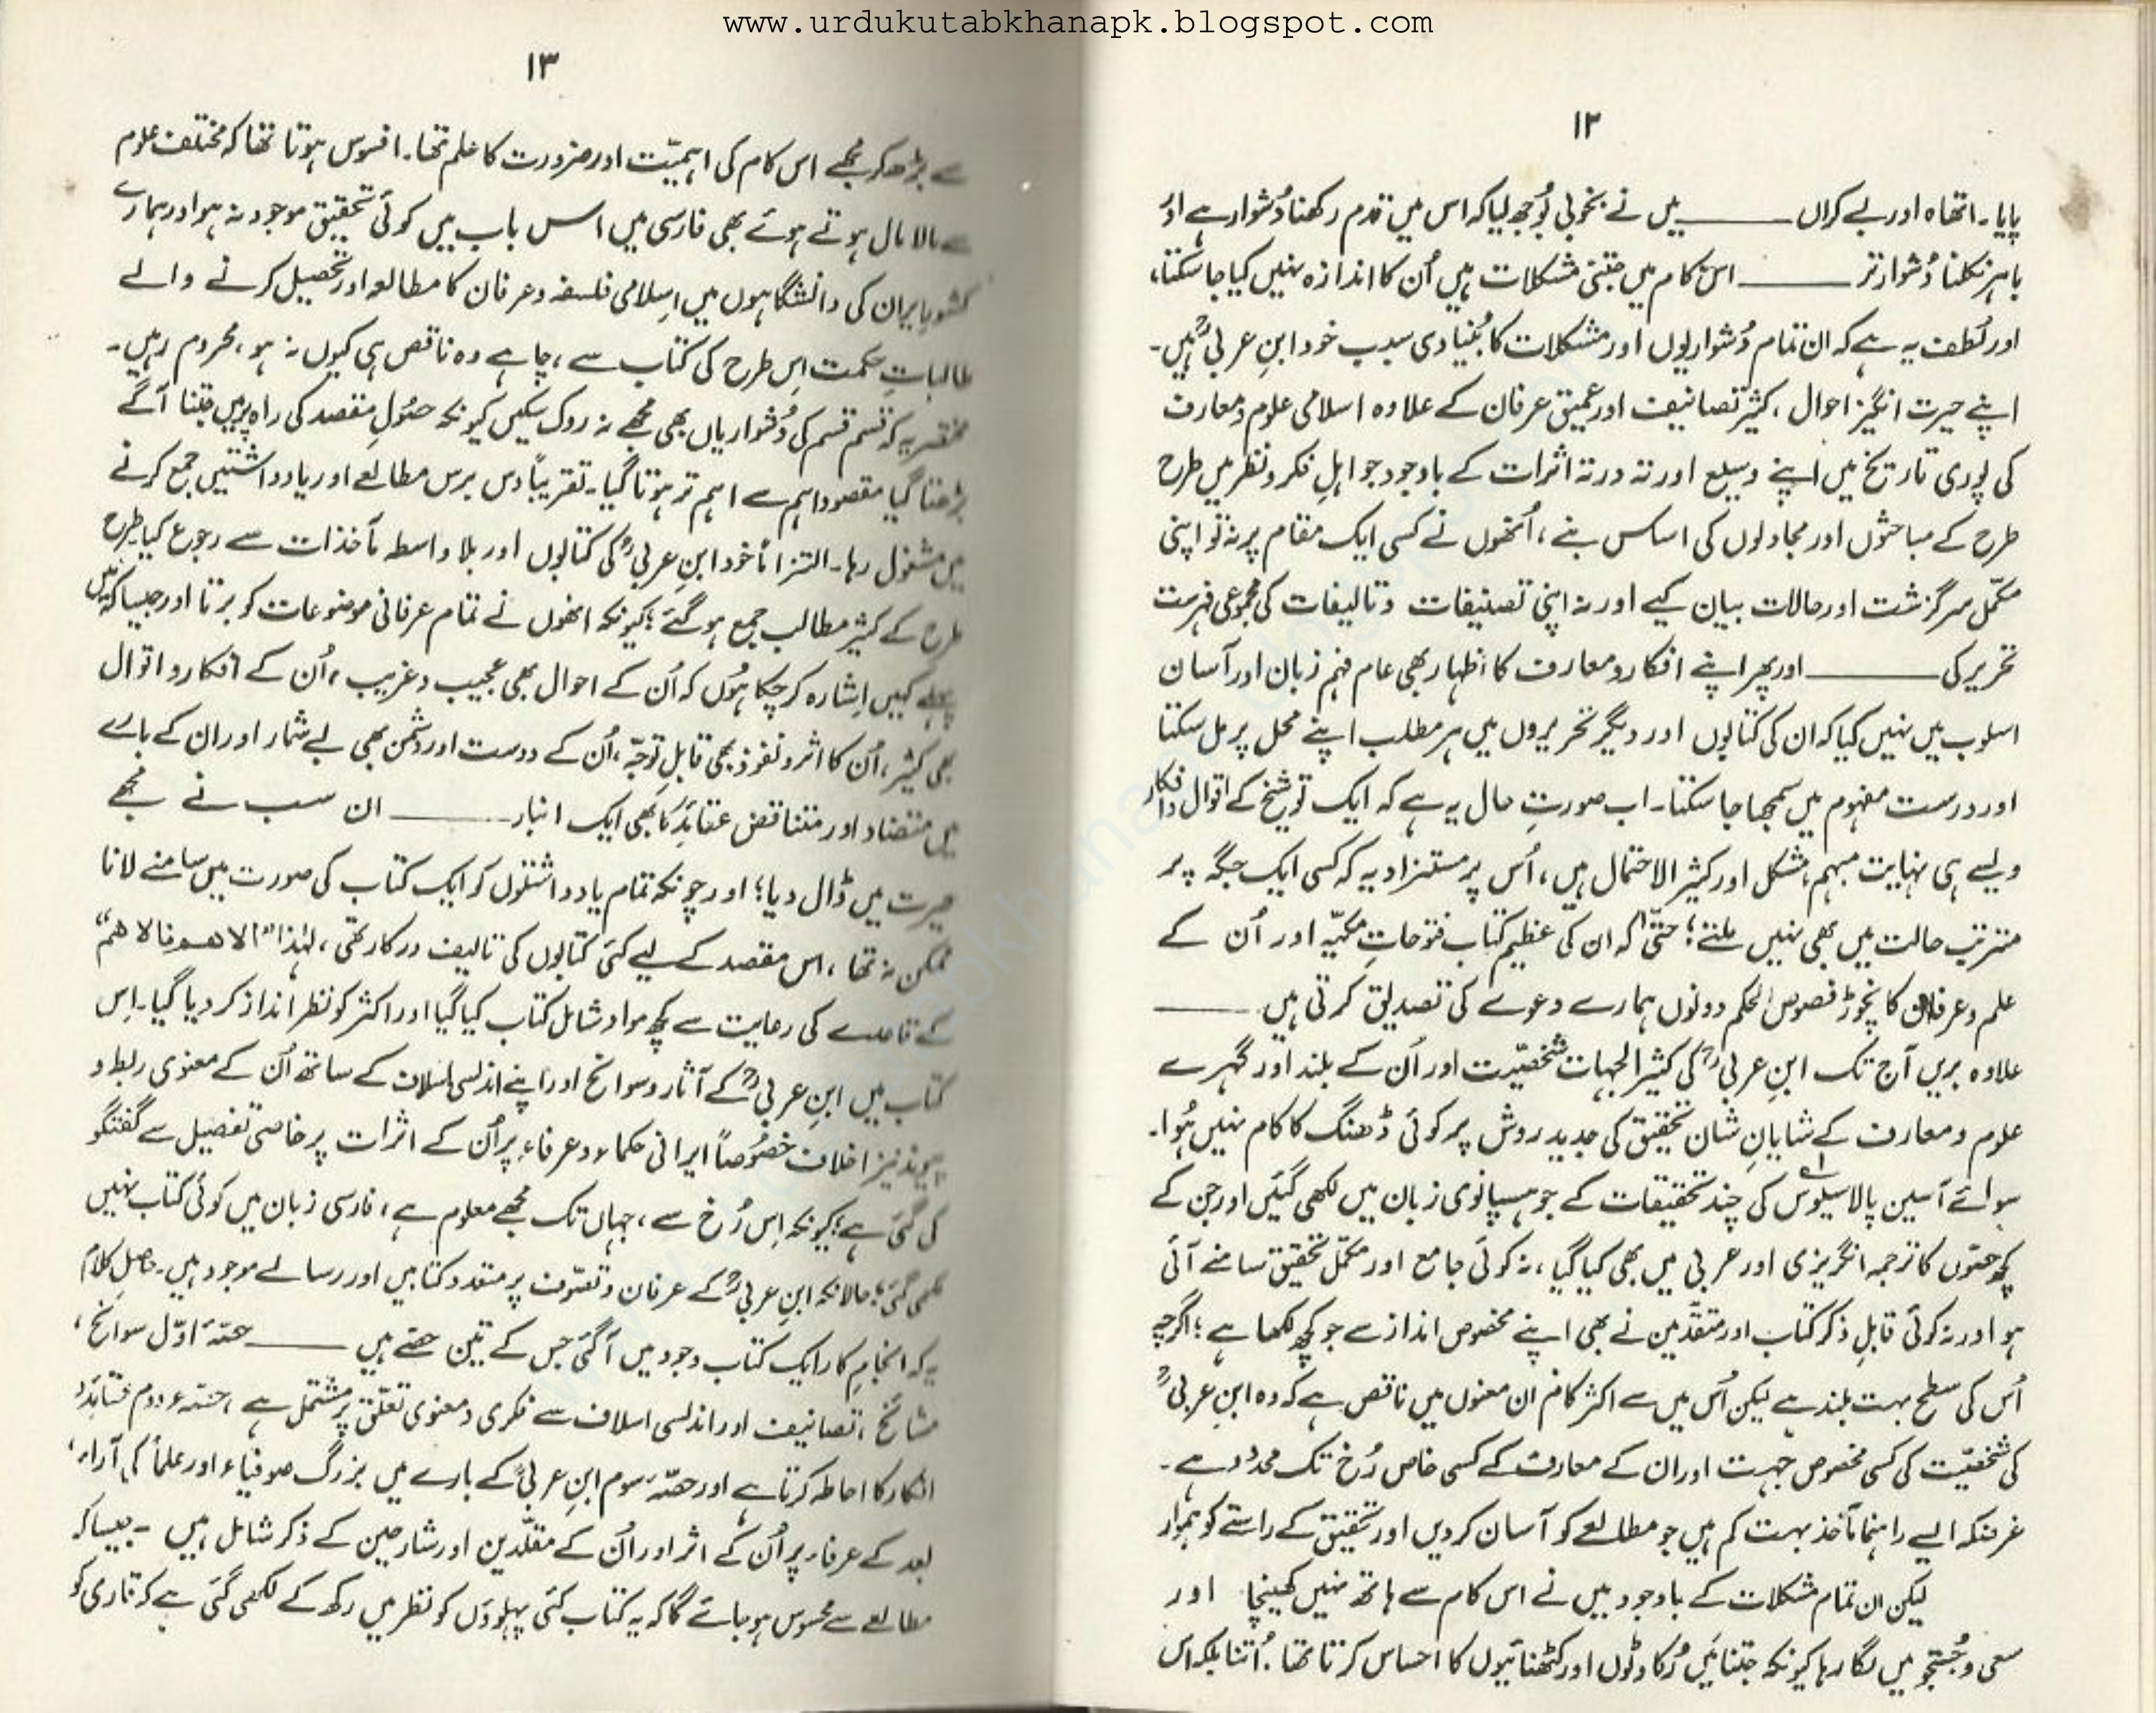 www.urdukutabkhanapk.blogspot.com
۱۲
پایا۔ اتھاہ اور بے کراں ——— میں نے بخوبی بُوجھ لیا کہ اس میں قدم رکھنا دُشوار ہے اور
باہر نکلنا دُشوار تر ——— اس کام میں جتنی مشکلات ہیں اُن کا اندازہ نہیں کیا جا سکتا،
اور لُطف یہ ہے کہ ان تمام دُشواریوں اور مشکلات کا بُنیادی سبب خود ابنِ عربیؒ ہیں۔
اپنے حیرت انگیز احوال، کثیر تصانیف اور عمیق عرفان کے علاوہ اسلامی علوم و معارف
کی پوری تاریخ میں اپنے وسیع اور تہ در تہ اثرات کے باوجود جو اہلِ فکر و نظر میں طرح
طرح کے مباحثوں اور مجادلوں کی اساس بنے، اُنھوں نے کسی ایک مقام پر نہ تو اپنی
مکمّل سرگزشت اور حالات بیان کیے اور نہ اپنی تصنیفات و تالیفات کی مجموعی فہرست
تحریر کی ——— اور پھر اپنے افکار و معارف کا اظہار بھی عام فہم زبان اور آسان
اسلوب میں نہیں کیا کہ ان کی کتابوں اور دیگر تحریروں میں ہر مطلب اپنے محل پر مل سکتا
اور درست مفہوم میں سمجھا جا سکتا۔ اب صورتِ حال یہ ہے کہ ایک تو شیخ کے اقوال و افکار
ویسے ہی نہایت مبہم، مشکل اور کثیر الاحتمال ہیں، اُس پر مستزاد یہ کہ کسی ایک جگہ پر
مترتب حالت میں بھی نہیں ملتے؛ حتّیٰ کہ ان کی عظیم کتاب فتوحاتِ مکیّہ اور اُن کے
علم و عرفان کا نچوڑ فصوص الحکم دونوں ہمارے دعوے کی تصدیق کرتی ہیں ———
علاوہ بریں آج تک ابنِ عربیؒ کی کثیر الجہات شخصیّت اور اُن کے بلند اور گہرے
علوم و معارف کے شایانِ شان تحقیق کی جدید روش پر کوئی ڈھنگ کا کام نہیں ہُوا۔
سوائے آسین پالاسیوس۱؎ کی چند تحقیقات کے جو ہسپانوی زبان میں لکھی گئیں اور جن کے
کچھ حصّوں کا ترجمہ انگریزی اور عربی میں بھی کیا گیا، نہ کوئی جامع اور مکمّل تحقیق سامنے آئی
ہو اور نہ کوئی قابلِ ذکر کتاب اور متقدّمین نے بھی اپنے مخصوص انداز سے جو کچھ لکھا ہے؛ اگرچہ
اُس کی سطح بہت بلند ہے لیکن اُس میں سے اکثر کام ان معنوں میں ناقص ہے کہ وہ ابنِ عربیؒ
کی شخصیّت کی کسی مخصوص جہت اور ان کے معارف کے کسی خاص رُخ تک محدود ہے۔
غرضکہ ایسے راہنما مآخذ بہت کم ہیں جو مطالعے کو آسان کر دیں اور تحقیق کے راستے کو ہموار
لیکن ان تمام مشکلات کے باوجود میں نے اس کام سے ہاتھ نہیں کھینچا اور
سعی و جُستجو میں لگا رہا کیونکہ جتنا میں رُکاوٹوں اور کٹھنائیوں کا احساس کرتا تھا، اُتنا بلکہ اس
۱۳
سے بڑھ کر مجھے اس کام کی اہمیّت اور ضرورت کا علم تھا۔ افسوس ہوتا تھا کہ مختلف علوم
سے مالا مال ہوتے ہوئے بھی فارسی میں اس باب میں کوئی تحقیق موجود نہ ہو اور ہمارے
کشور ایران کی دانشگاہوں میں اسلامی فلسفہ و عرفان کا مطالعہ اور تحصیل کرنے والے
طالبانِ حکمت اِس طرح کی کتاب سے، چاہے وہ ناقص ہی کیوں نہ ہو، محروم رہیں۔
مختصر یہ کہ قسم قسم کی دُشواریاں بھی مجھے نہ روک سکیں کیونکہ حصُولِ مقصد کی راہ پر میں جتنا آگے
بڑھتا گیا مقصود اہم سے اہم تر ہوتا گیا۔ تقریباً دس برس مطالعے اور یادداشتیں جمع کرنے
میں مشغول رہا۔ التزاماً خود ابنِ عربیؒ کی کتابوں اور بلا واسطہ مآخذات سے رجوع کیا طرح
طرح کے کثیر مطالب جمع ہو گئے؛ کیونکہ انھوں نے تمام عرفانی موضوعات کو برتا اور جیسا کہ میں
پہلے کہیں اِشارہ کر چکا ہُوں کہ اُن کے احوال بھی عجیب و غریب، اُن کے افکار و اقوال
بھی کثیر، اُن کا اثر و نفوذ بھی قابلِ توجّہ، اُن کے دوست اور دشمن بھی بے شمار اور ان کے بارے
میں متضاد اور متناقض عقائد کا بھی ایک انبار ——— ان سب نے مجھے
حیرت میں ڈال دیا؛ اور چونکہ تمام یادداشتوں کو ایک کتاب کی صورت میں سامنے لانا
ممکن نہ تھا، اس مقصد کے لیے کئی کتابوں کی تالیف درکار تھی، لہٰذا "الاھم فالاھم"
کے قاعدے کی رعایت سے کچھ مواد شاملِ کتاب کیا گیا اور اکثر کو نظر انداز کر دیا گیا۔ اِس
کتاب میں ابنِ عربیؒ کے آثار و سوانح اور اپنے اندلسی اسلاف کے ساتھ اُن کے معنوی ربط و
پیوند نیز اخلاف خصُوصاً ایرانی حکماء و عرفاء پر اُن کے اثرات پر خاصی تفصیل سے گفتگو
کی گئی ہے؛ کیونکہ اِس رُخ سے، جہاں تک مجھے معلوم ہے، فارسی زبان میں کوئی کتاب نہیں
لکھی گئی؛ حالانکہ ابنِ عربیؒ کے عرفان و تصوّف پر متعدد کتابیں اور رسالے موجود ہیں۔ حاصلِ کلام
یہ کہ انجامِ کار ایک کتاب وجود میں آ گئی جس کے تین حصّے ہیں ——— حصّۂ اوّل سوانح،
مشائخ، تصانیف اور اندلسی اسلاف سے فکری و معنوی تعلّق پر مشتمل ہے، حصّہء دوم عقائد و
افکار کا احاطہ کرتا ہے اور حصّۂ سوم ابنِ عربیؒ کے بارے میں بزرگ صوفیاء اور علماٗ کی آراء،
بعد کے عرفاء پر اُن کے اثر اور اُن کے مقلّدین اور شارحین کے ذکر شامل ہیں۔ جیسا کہ
مطالعے سے محسوس ہو جائے گا کہ یہ کتاب کئی پہلوؤں کو نظر میں رکھ کے لکھی گئی ہے کہ قاری کو